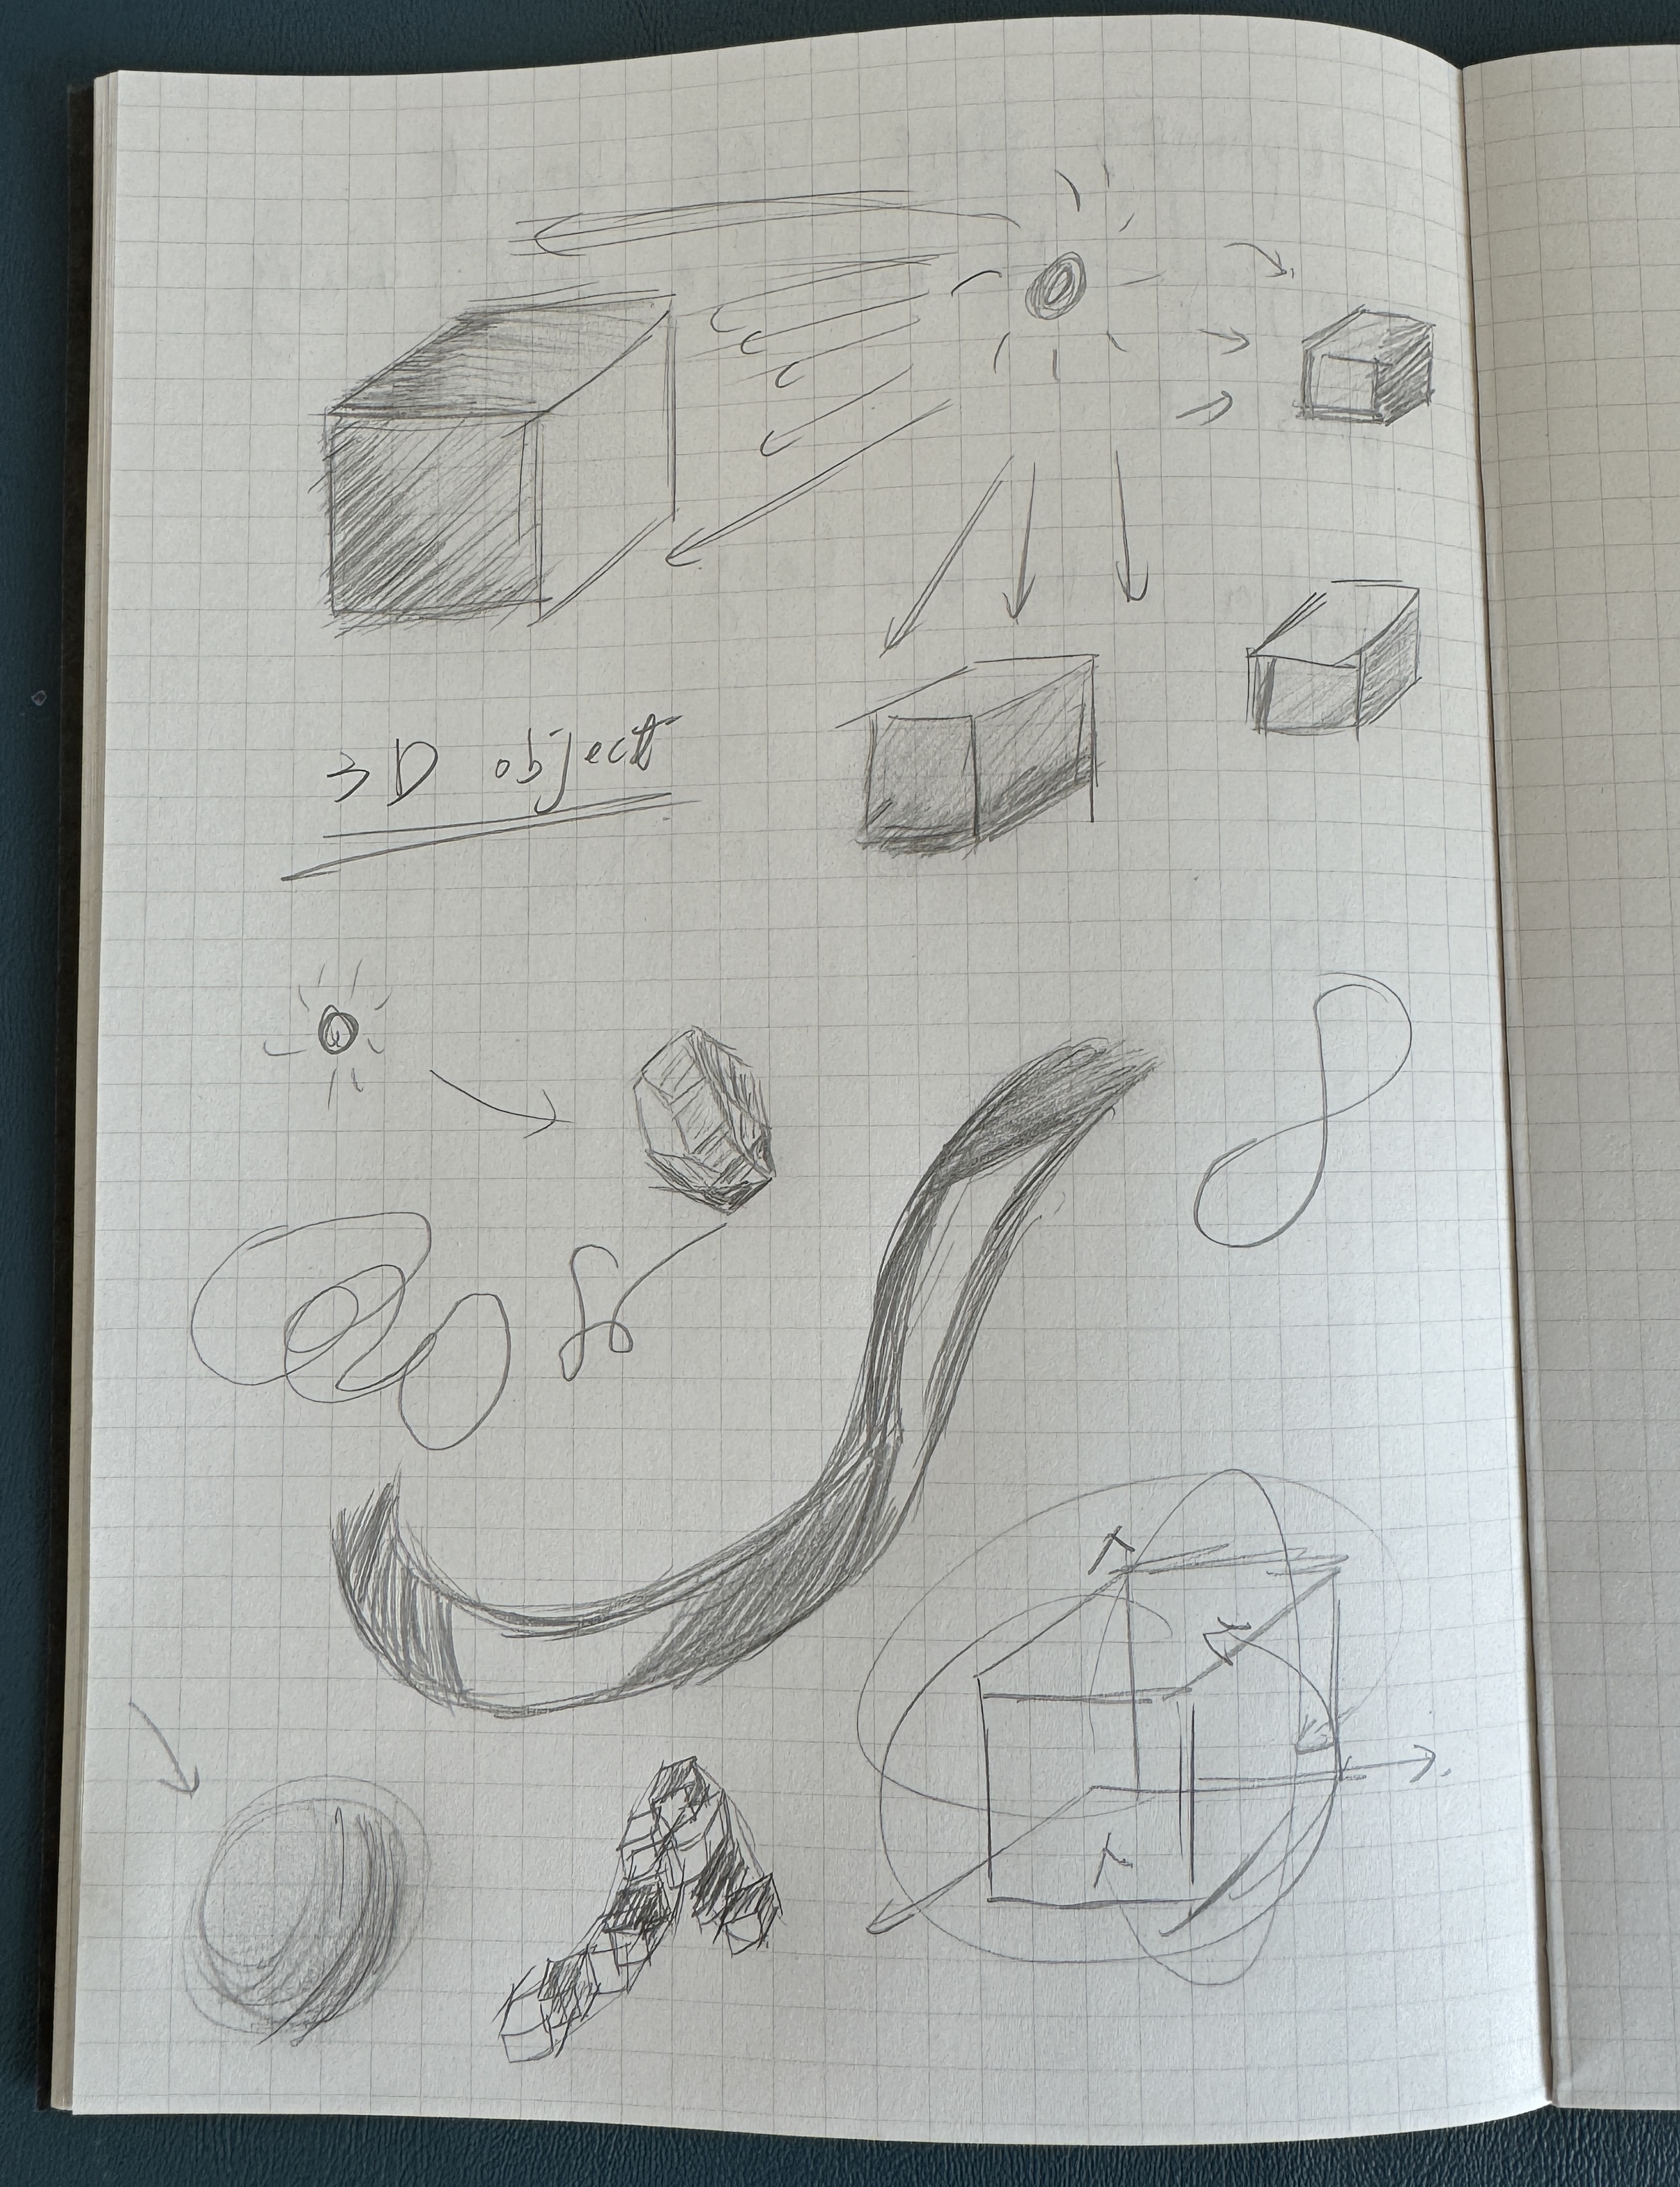 3D object